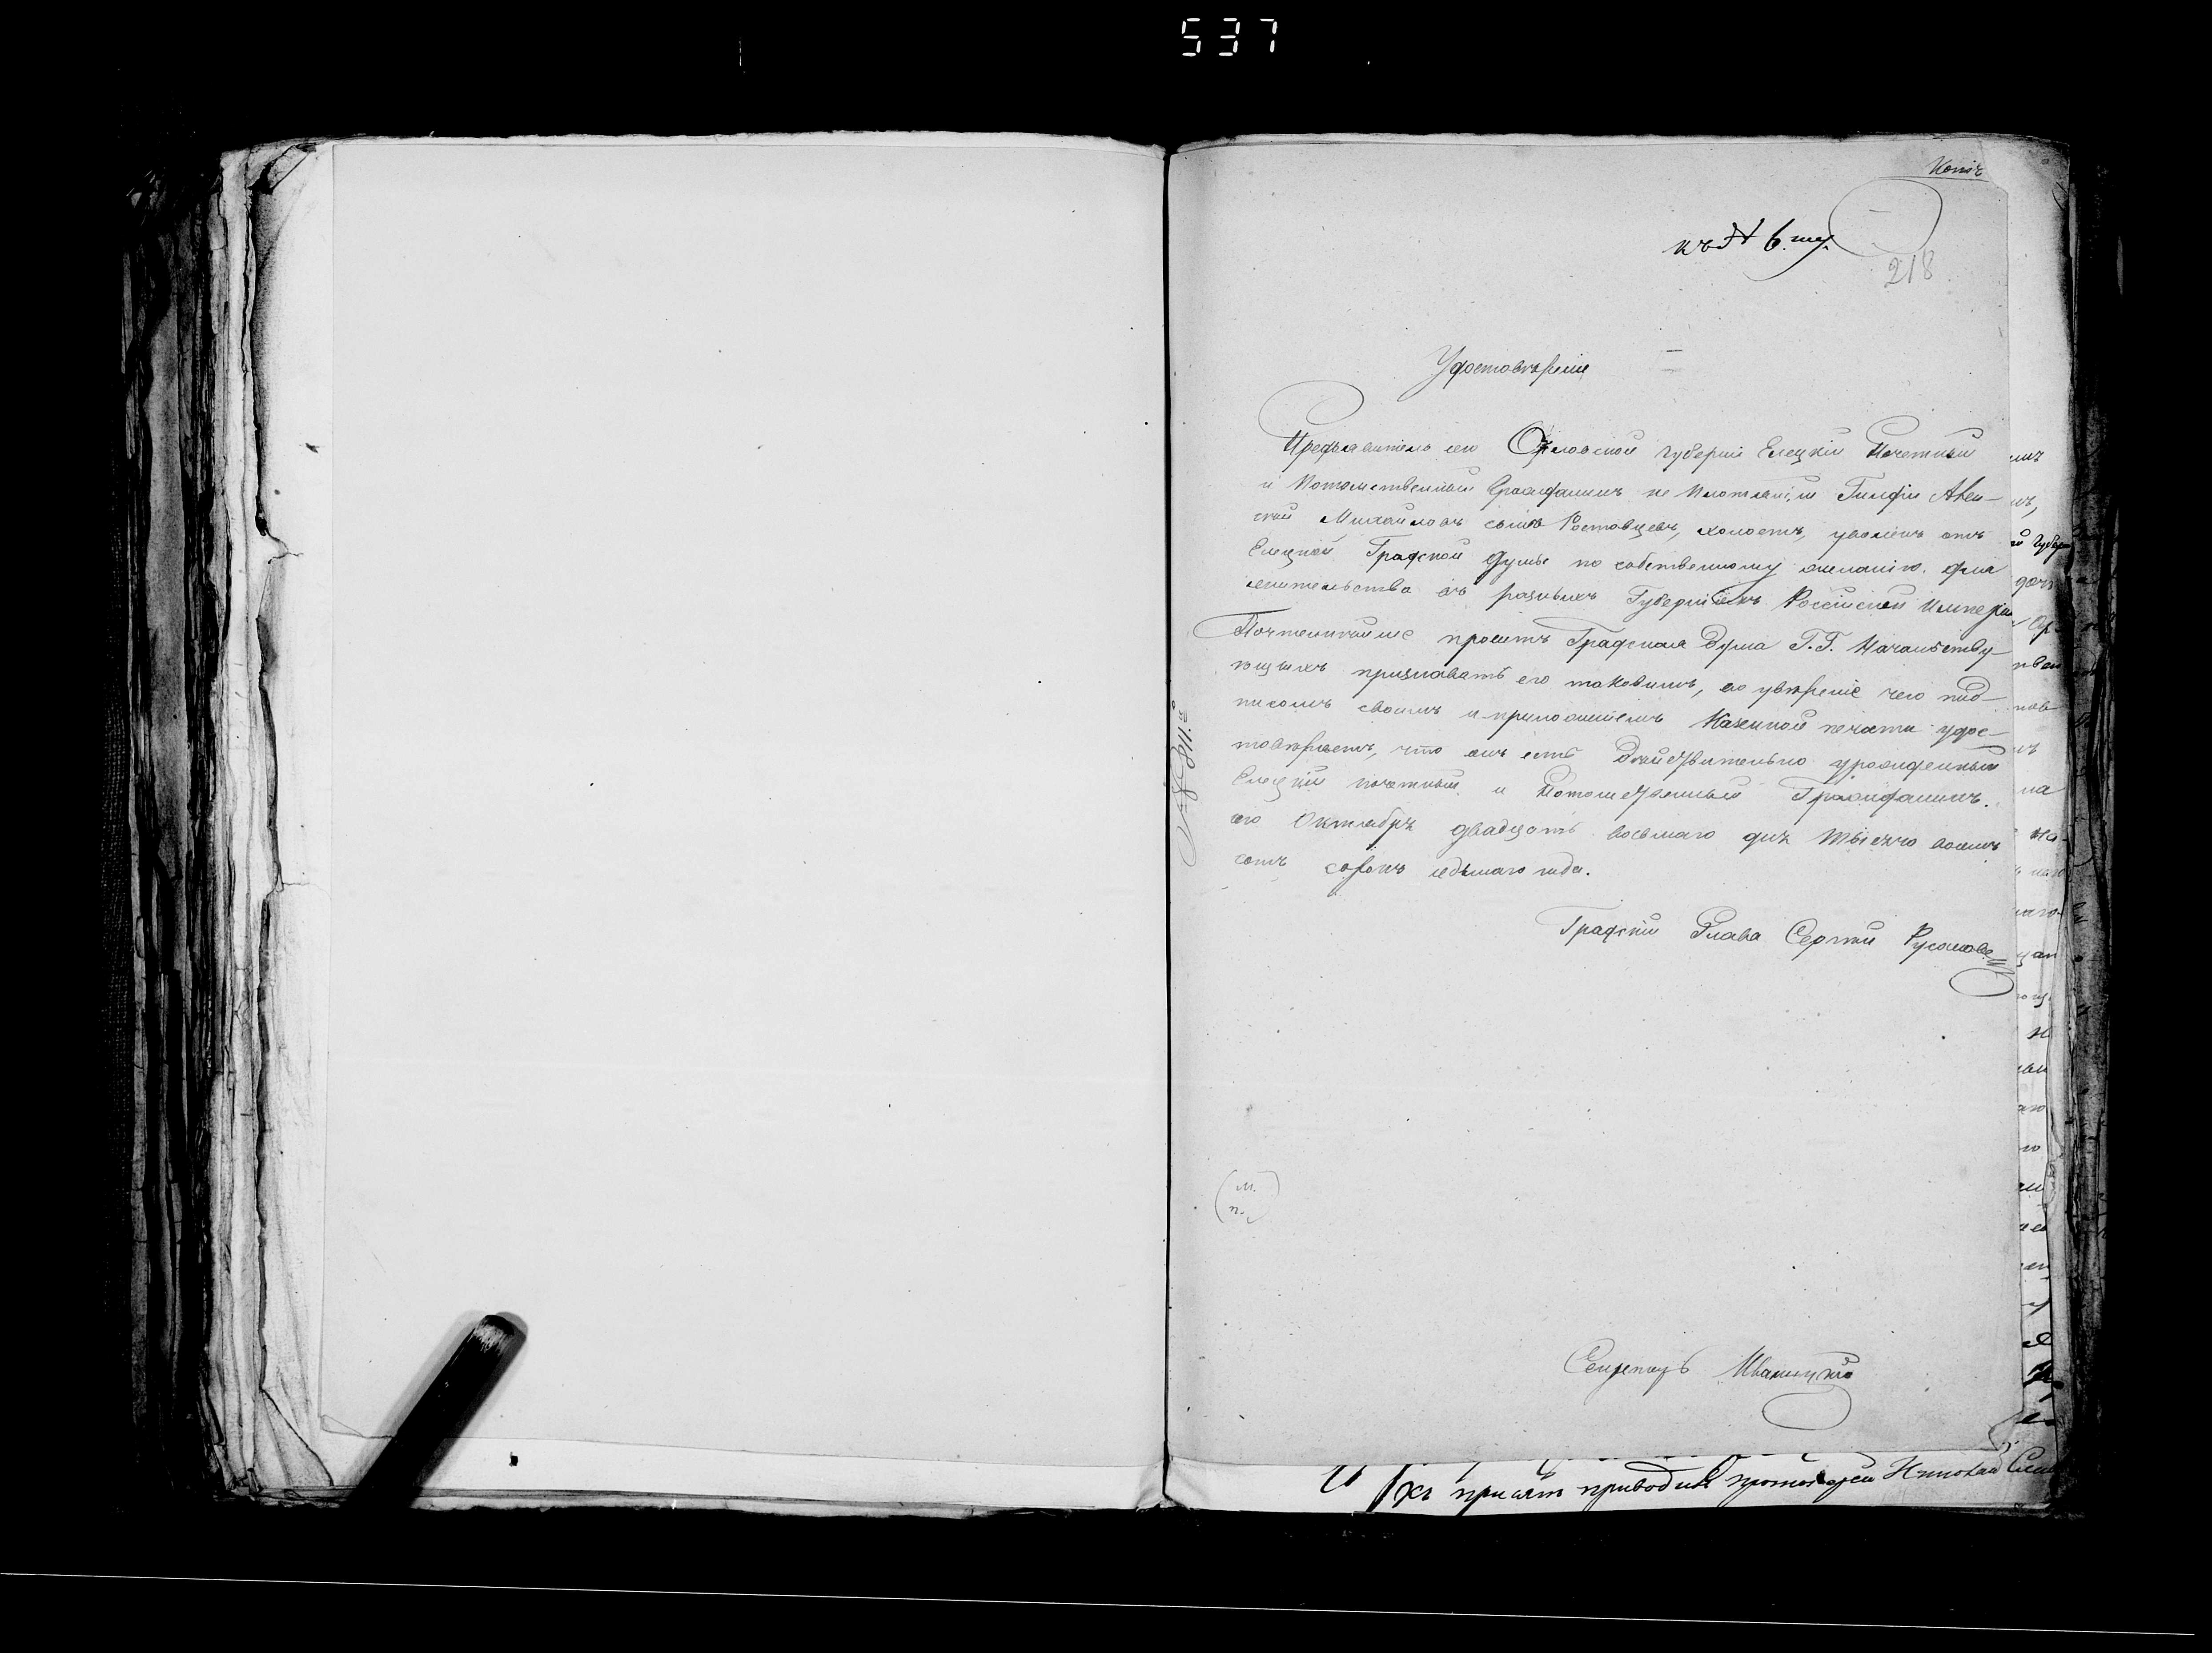 537
Копія
къ № 6.му.
218
Удостовѣреніе
Предъявитель сего Орловской губерніи Елецкій Почетный
и Потомственный Гражданинъ не Алек-
сѣй Михайловъ сынъ Ростовцевъ, холостъ, уволенъ отъ
Елецкой Градской Думы по собственному желанію, для
жительства въ разныхъ Губерніяхъ Россійской Имперіи
Почтеннѣйше проситъ Градская Дума Г.Г. Начальству-
ющихъ признавать его таковымъ, во увѣреніе чего под-
писомъ своимъ и приложеніемъ Казенной печати удос-
товѣряетъ, что онъ есть Дѣйствительно урожденный
Елецкій почетный и Потомственный Гражданинъ.
его Октября двадцать восьмаго дня тысячо восемь
сотъ сорокъ седьмаго года.
№ 811.
Градскій Глава Сергѣй Русанов
М.
П.
Секретарь Иваницкій
къ присягѣ приводилъ протоіерей Николай